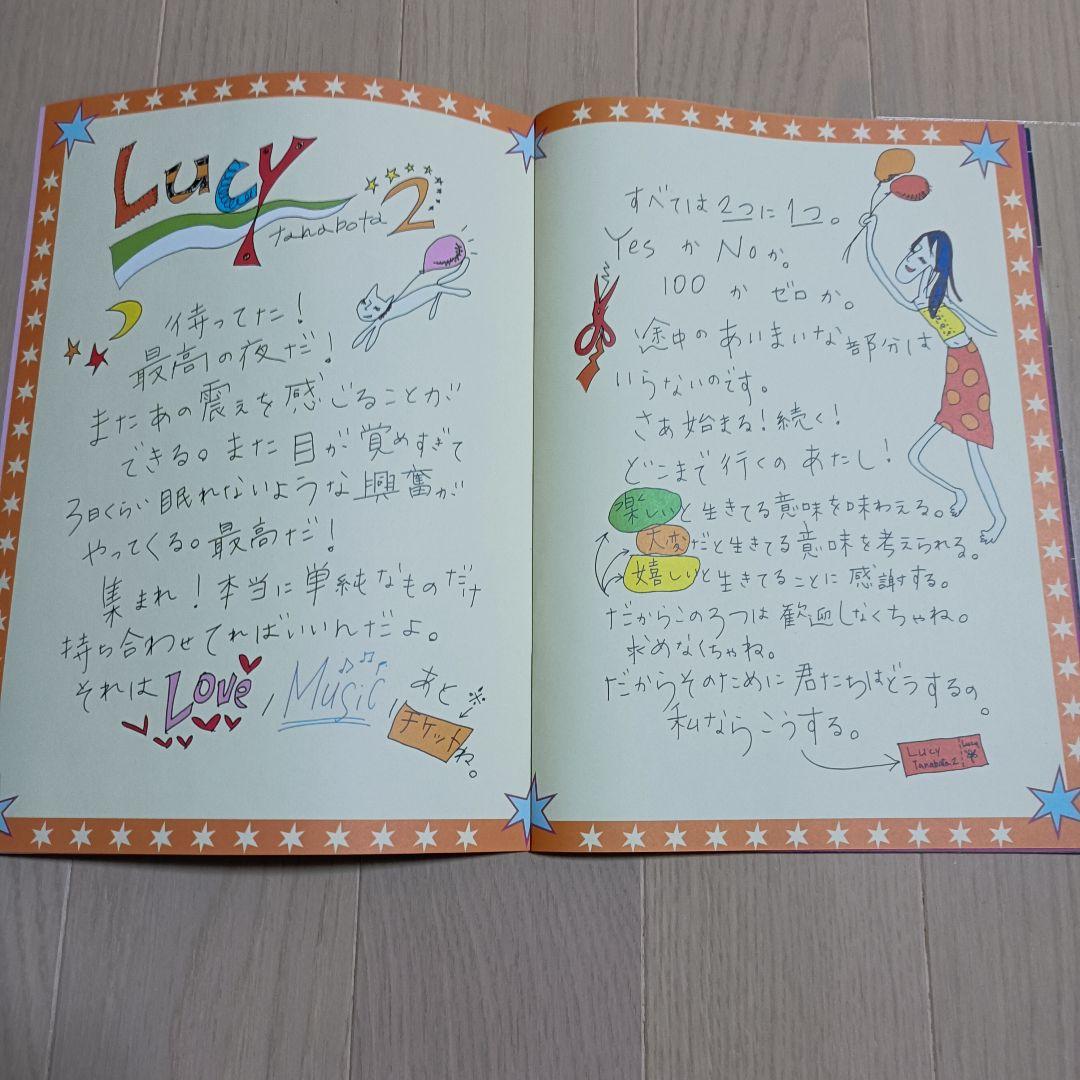 Lucy
tanabota 2
待ってた!
最高の夜だ!
またあの震えを感じることが
できる。また目が覚めすぎて
3日くらい眠れないような興奮が
やってくる。最高だ!
集まれ!本当に単純なものだけ
持ち合わせてればいいんだよ。
それは Love, Music, あと※
チケットね。
すべては2つに1つ。
Yes か No か。
100 か ゼロ か。
途中のあいまいな部分は
いらないのです。
さあ始まる!続く!
どこまで行くのあたし!
楽しいと生きてる意味を味わえる。
大変だと生きてる意味を考えられる。
嬉しいと生きてることに感謝する。
だからこの3つは歓迎しなくちゃね。
求めなくちゃね。
だからそのために君たちはどうするの。
私ならこうする。
Lucy
Tanabota 2